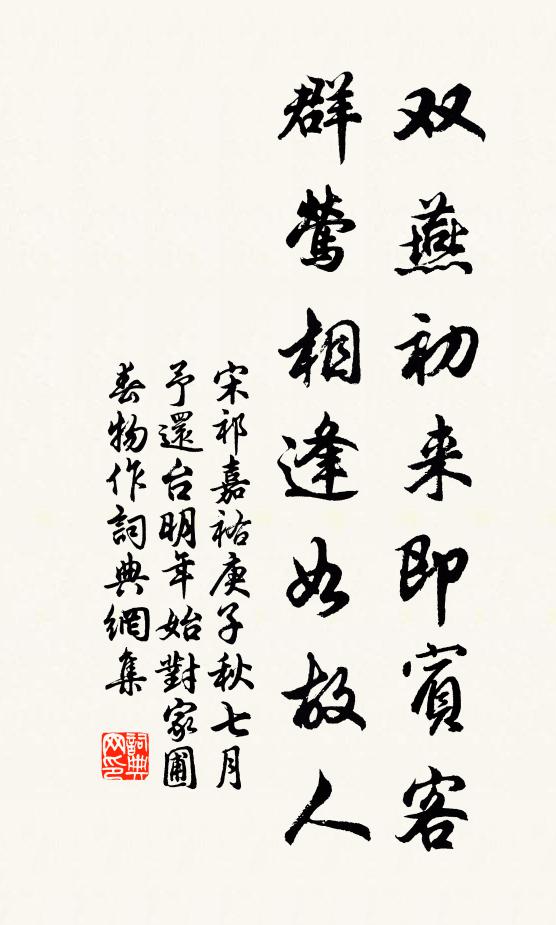 双燕初来即賓客
群鶯相逢如故人
宋祁嘉祐庚子秋七月
予還台明年始對家圃
春物作詞典網集
詞典网印